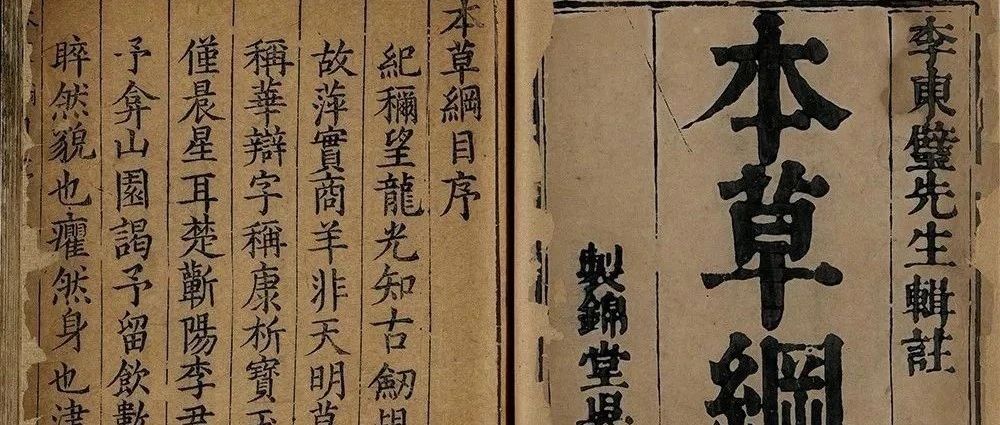 李東璧先生輯註
本草綱
製錦堂
本草綱目序
紀穪望龍光知古劒
故萍實商羊非天明
稱華辯字稱康析寶玉
僅晨星耳楚蘄陽李君
予弇山園謁予留飲數
睟然貌也癯然身也津